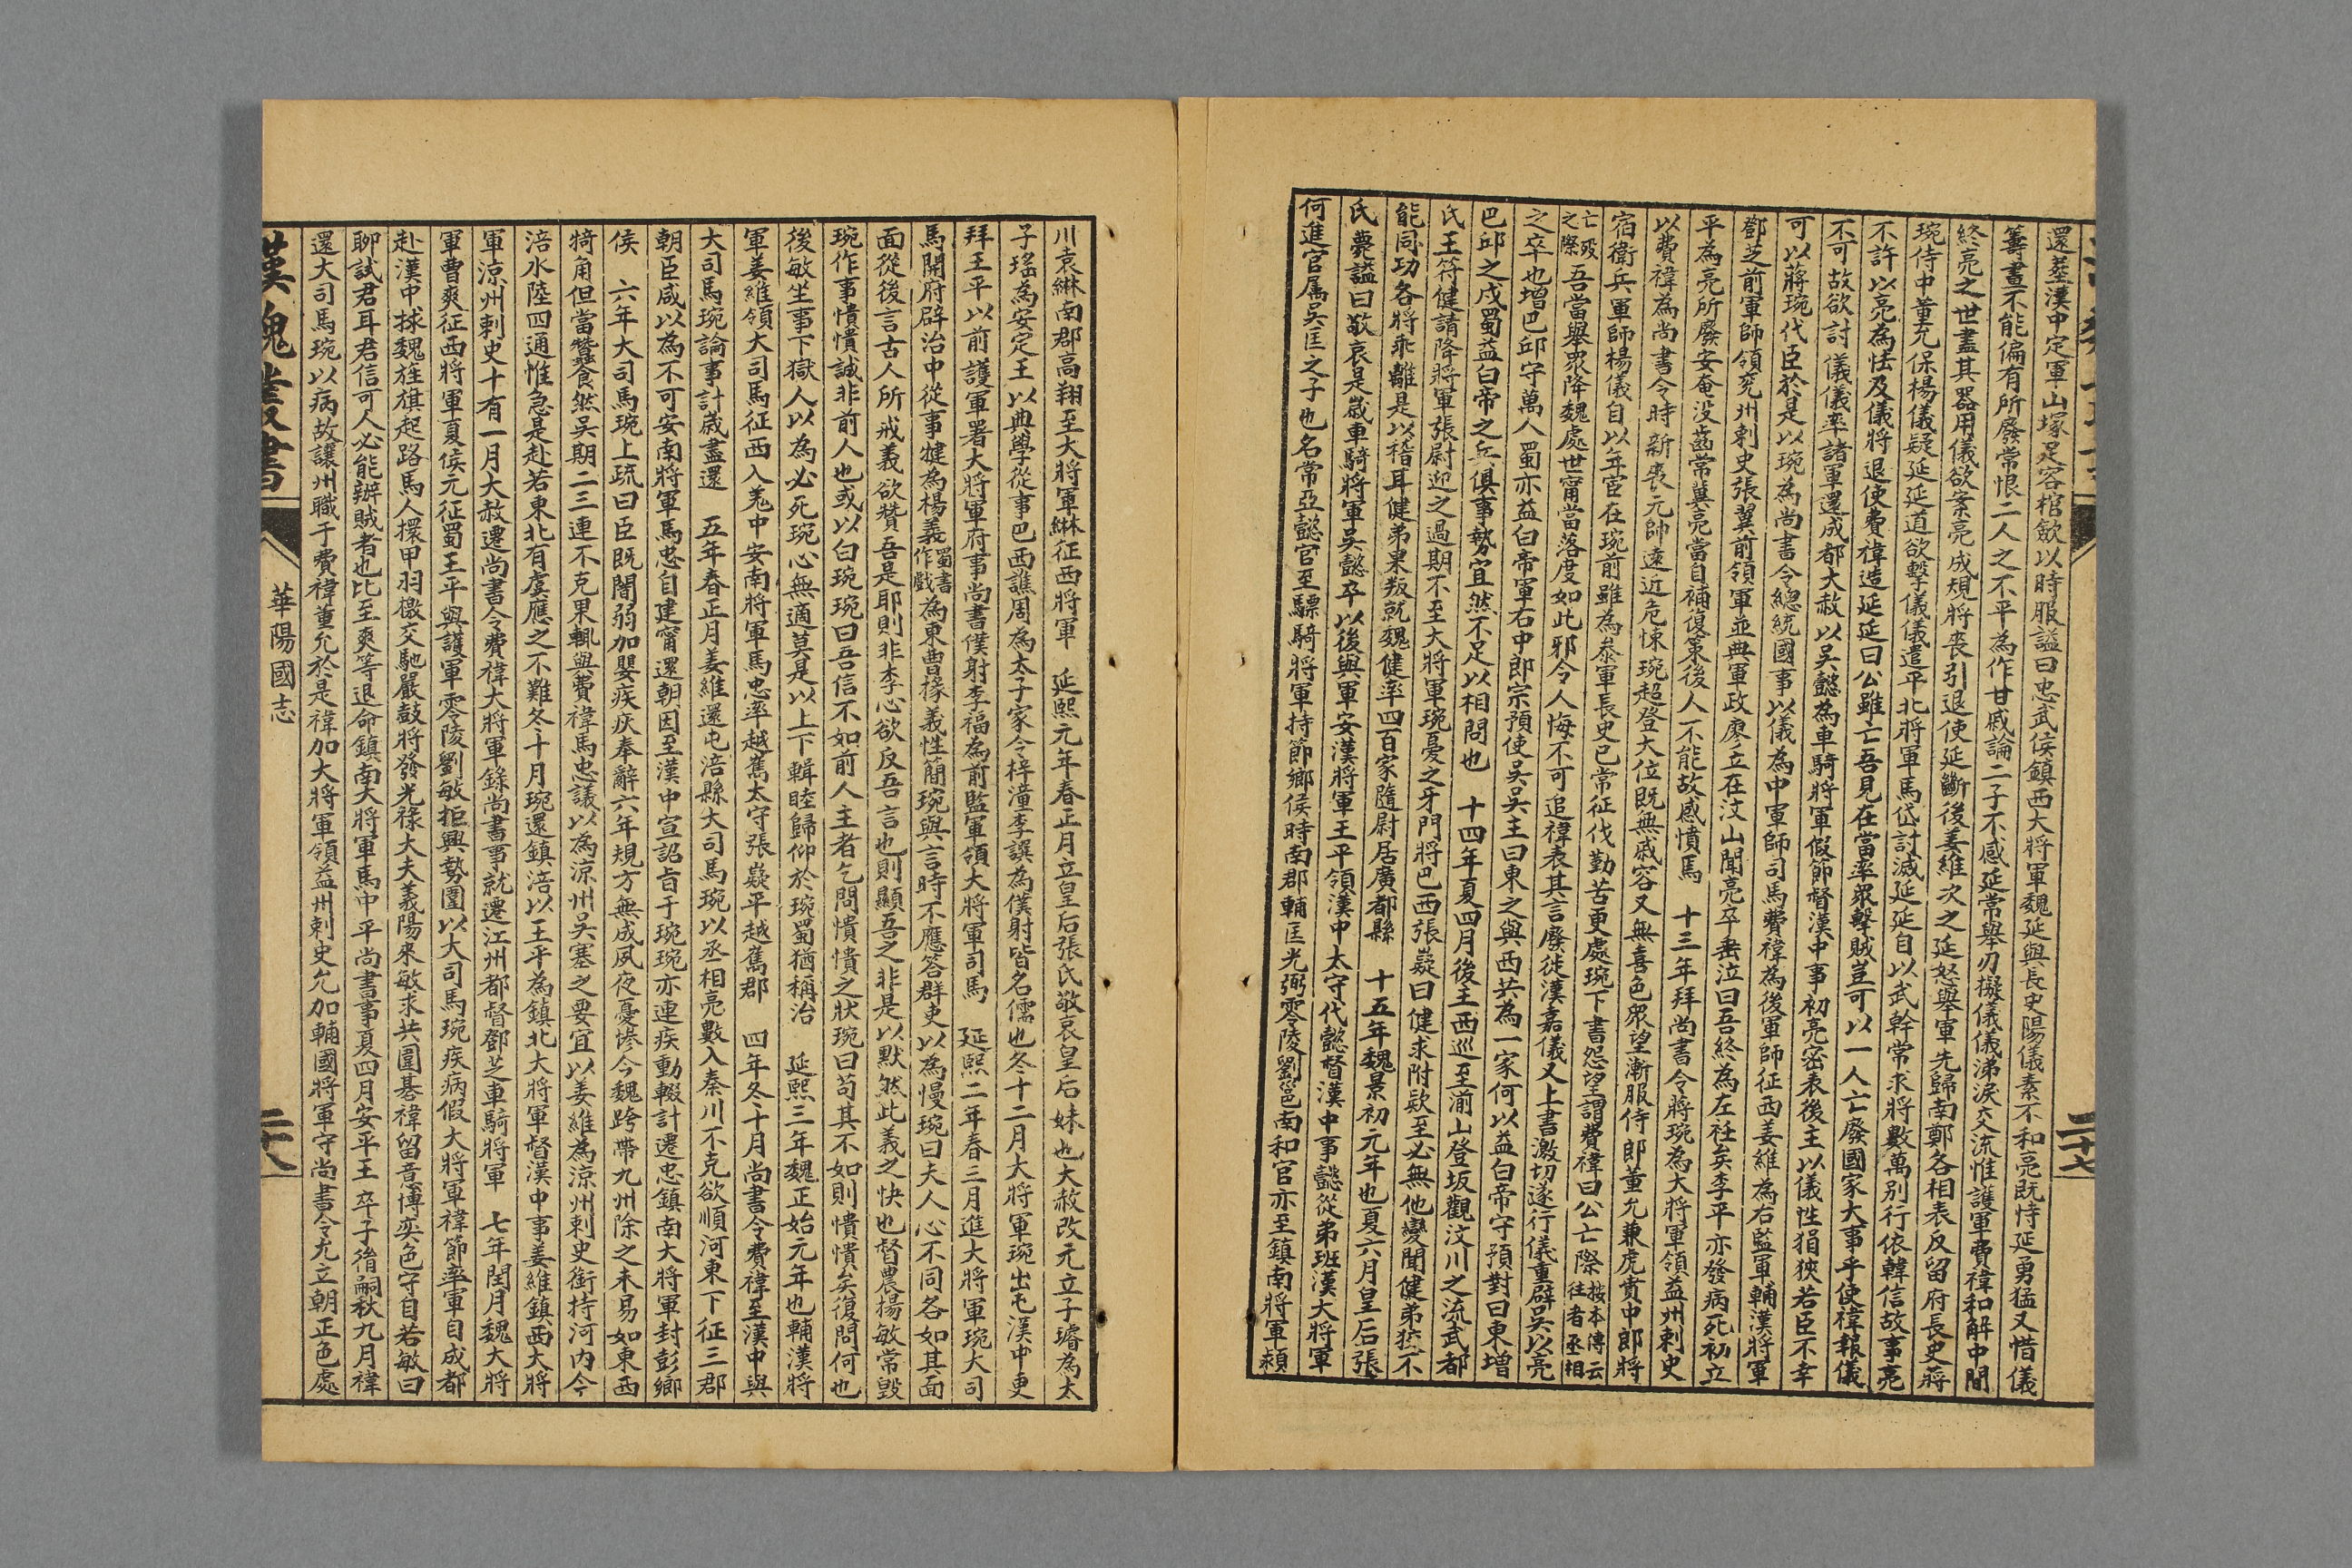 二十七
還葬漢中定軍山塚足容棺斂以時服謚曰忠武侯鎮西大將軍魏延與長史陽儀素不和亮既恃延勇猛又惜儀
籌畫不能偏有所廢常恨二人之不平為作甘戚論二子不感延常舉刃擬儀儀涕淚交流惟護軍費禕和解中間
終亮之世盡其器用儀欲案亮成規將喪引退使延斷後姜維次之延怒舉軍先歸南鄭各相表反留府長史蔣
琬侍中董允保楊儀疑延延道欲擊儀儀遣平北將軍馬岱討滅延延自以武幹常求將數萬别行依韓信故事亮
不許以亮為怯及儀將退使費禕造延延曰公雖亡吾見在當率眾擊賊豈可以一人亡廢國家大事乎使禕報儀
不可故欲討儀儀率諸軍還成都大赦以吳懿為車騎將軍假節督漢中事初亮密表後主以儀性狷狹若臣不幸
可以蔣琬代臣於是以琬為尚書令總統國事以儀為中軍師司馬費禕為後軍師征西姜維為右監軍輔漢將軍
鄧芝前軍師領兖州刺史張翼前領軍並典軍政廖立在汶山聞亮卒垂泣曰吾終為左衽矣李平亦發病死初立
平為亮所廢安奄没齒常冀亮當自補復策後人不能故感憤焉　十三年拜尚書令蔣琬為大將軍領益州刺史
以費禕為尚書令時新喪元帥遠近危悚琬超登大位既無戚容又無喜色眾望漸服侍郎董允兼虎賁中郎將
宿衛兵軍師楊儀自以年宦在琬前雖為叅軍長史已常征伐勤苦更處琬下書怨望謂費禕曰公亡際按本傳云往者丞相
亡歿之際吾當舉眾降魏處世甯當落度如此邪令人悔不可追禕表其言廢徙漢嘉儀又上書激切遂行儀重辟吳以亮
之卒也增巴邱守萬人蜀亦益白帝軍右中郎宗預使吳吳主曰東之與西共為一家何以益白帝守預對曰東增
巴邱之戍蜀益白帝之兵俱事勢宜然不足以相問也　十四年夏四月後主西巡至湔山登坂觀汶川之流武都
氐王符健請降將軍張尉迎之過期不至大將軍琬憂之牙門將巴西張嶷曰健求附欵至必無他變聞健弟狡不
能同功各將乖離是以稽耳健弟果叛就魏健率四百家隨尉居廣都縣　十五年魏景初元年也夏六月皇后張
氏薨謚曰敬哀是歲車騎將軍吳懿卒以後與軍安漢將軍王平領漢中太守代懿督漢中事懿從弟班漢大將軍
何進官属吳匡之子也名常亞懿官至驃騎將軍持節鄉侯時南郡輔匡光弼零陵劉邕南和官亦至鎮南將軍潁
川袁綝南郡高翔至大將軍綝征西將軍　延熙元年春正月立皇后張氏敬哀皇后妹也大赦改元立子璿為太
子瑤為安定王以典學從事巴西譙周為太子家令梓潼李譔為僕射皆名儒也冬十二月大將軍琬出屯漢中更
拜王平以前護軍署大將軍府事尚書僕射李福為前監軍領大將軍司馬　延熙二年春三月進大將軍琬大司
馬開府辟治中從事犍為楊義蜀書作戲為東曹掾義性簡琬與言時不應答群吏以為慢琬曰夫人心不同各如其面
面從後言古人所戒義欲贊吾是耶則非李心欲反吾言也則顯吾之非是以默然此義之快也督農揚敏常毀
琬作事憒憒誠非前人也或以白琬琬曰吾信不如前人主者乞問憒憒之狀琬曰苟其不如則憒憒矣復問何也
後敏坐事下獄人以為必死琬心無適莫是以上下輯睦歸仰於琬蜀猶稱治　延熙三年魏正始元年也輔漢將
軍姜維領大司馬征西入羌中安南將軍馬忠率越嶲太守張嶷平越嶲郡　四年冬十月尚書令費禕至漢中與
大司馬琬論事計歲盡還　五年春正月姜維還屯涪縣大司馬琬以丞相亮數入秦川不克欲順河東下征三郡
朝臣咸以為不可安南將軍馬忠自建甯還朝因至漢中宣詔旨于琬琬亦連疾動輟計遷忠鎮南大將軍封彭鄉
侯　六年大司馬琬上疏曰臣既闇弱加嬰疾疢奉辭六年規方無成夙夜憂慘今魏跨帶九州除之未易如東西
犄角但當蠶食然吳期二三連不克果輒與費禕馬忠議以為涼州吳塞之要宜以姜維為涼州刺史銜持河内今
涪水陸四通惟急是赴若東北有虞應之不難冬十月琬還鎮涪以王平為鎮北大將軍督漢中事姜維鎮西大將
軍涼州刺史十有一月大赦遷尚書令費禕大將軍錄尚書事就遷江州都督鄧芝車騎將軍　七年閏月魏大將
軍曹爽征西將軍夏侯元征蜀王平與護軍零陵劉敏拒興勢圍以大司馬琬疾病假大將軍禕節率軍自成都
赴漢中救魏旌旗起路馬人擐甲羽檄交馳嚴鼓將發光祿大夫義陽來敏求共圍棊禕留意博奕色守自若敏曰
聊試君耳君信可人必能辦賊者也比至爽等退命鎮南大將軍馬中平尚書事夏四月安平王卒子脩嗣秋九月禕
還大司馬琬以病故讓州職于費禕董允於是禕加大將軍領益州刺史允加輔國將軍守尚書令允立朝正色處
漢魏叢書
華陽國志
二十八